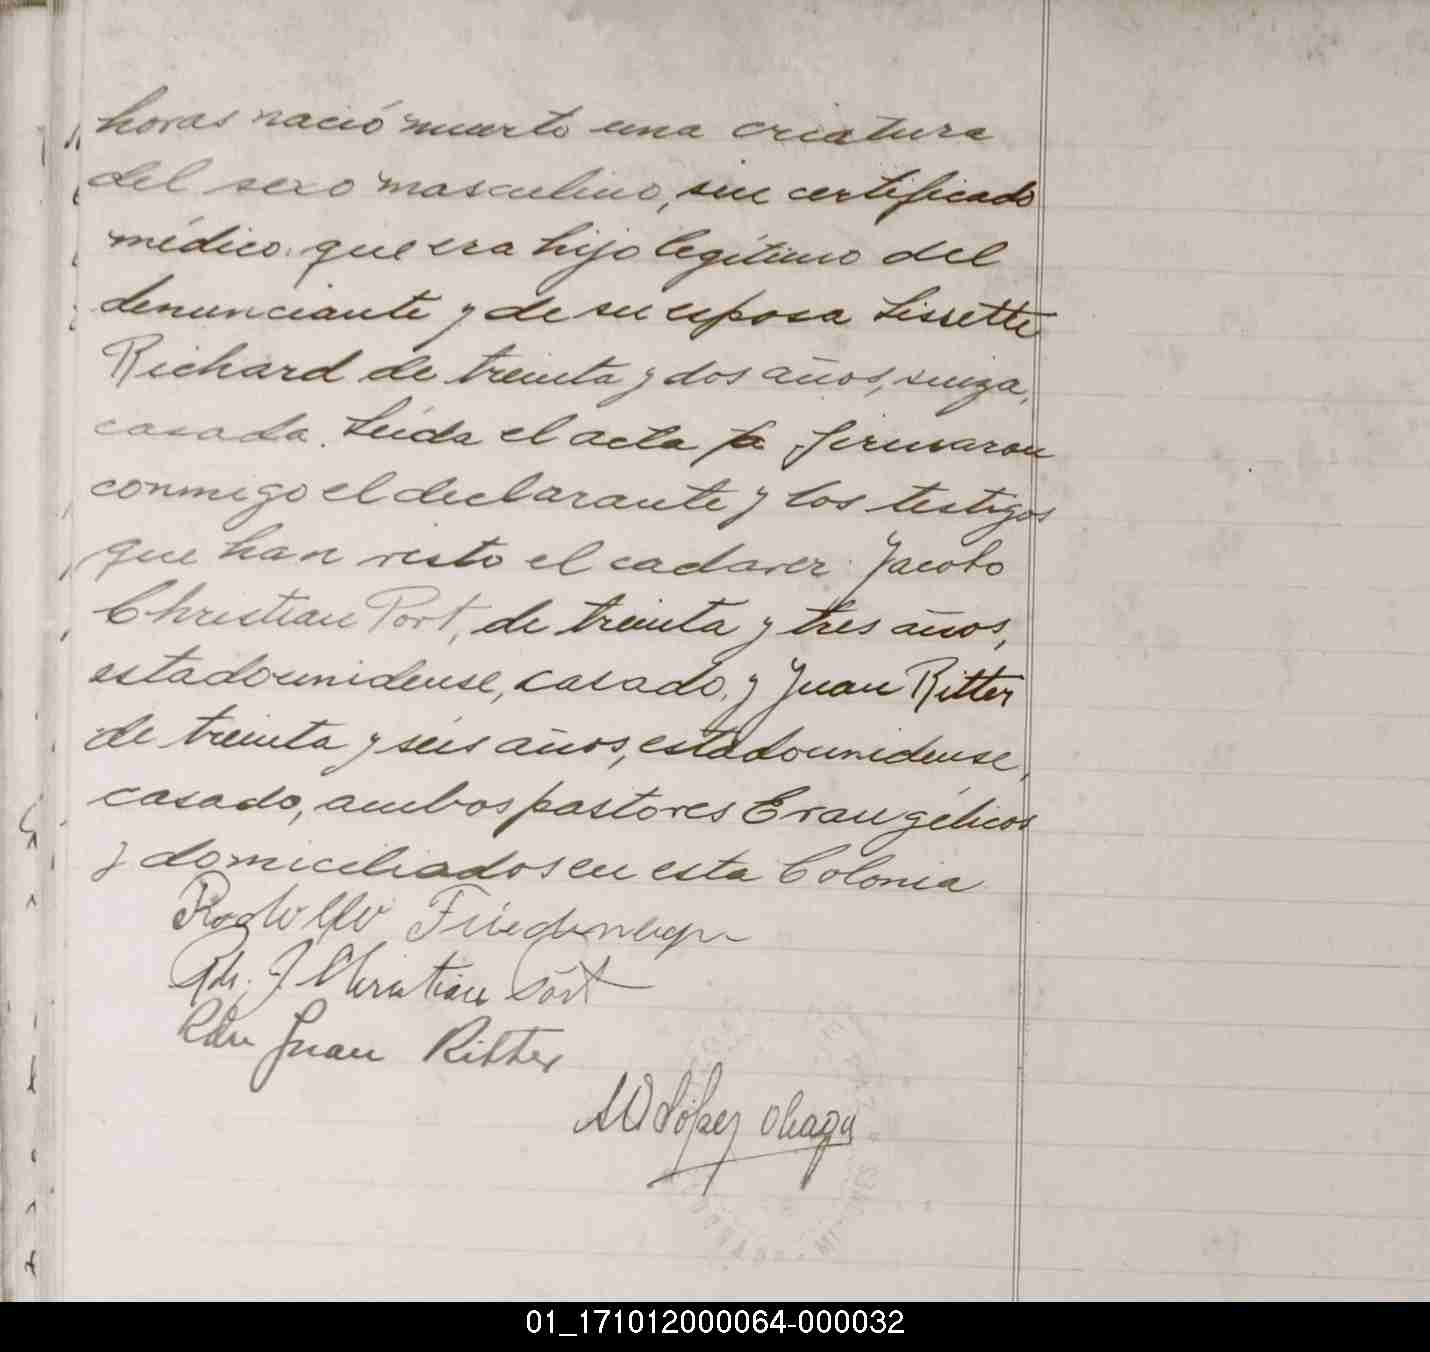 horas nació muerto una criatura
del sexo masculino, sin certificado
médico. que era hijo legítimo del
denunciante y de su esposa Lissette
Richard de treinta y dos años, suiza,
casada. Leída el acta la firmaron
conmigo el declarante y los testigos
que han visto el cadaver: Jacobo
Christian Port, de treinta y tres años,
estadounidense, casado, y Juan Ritter
de treinta y seis años, estadounidense,
casado, ambos pastores Evangélicos
y domiciliados en esta Colonia
Rodolfo
J Christian Port
Juan Ritter
López
01_171012000064-000032